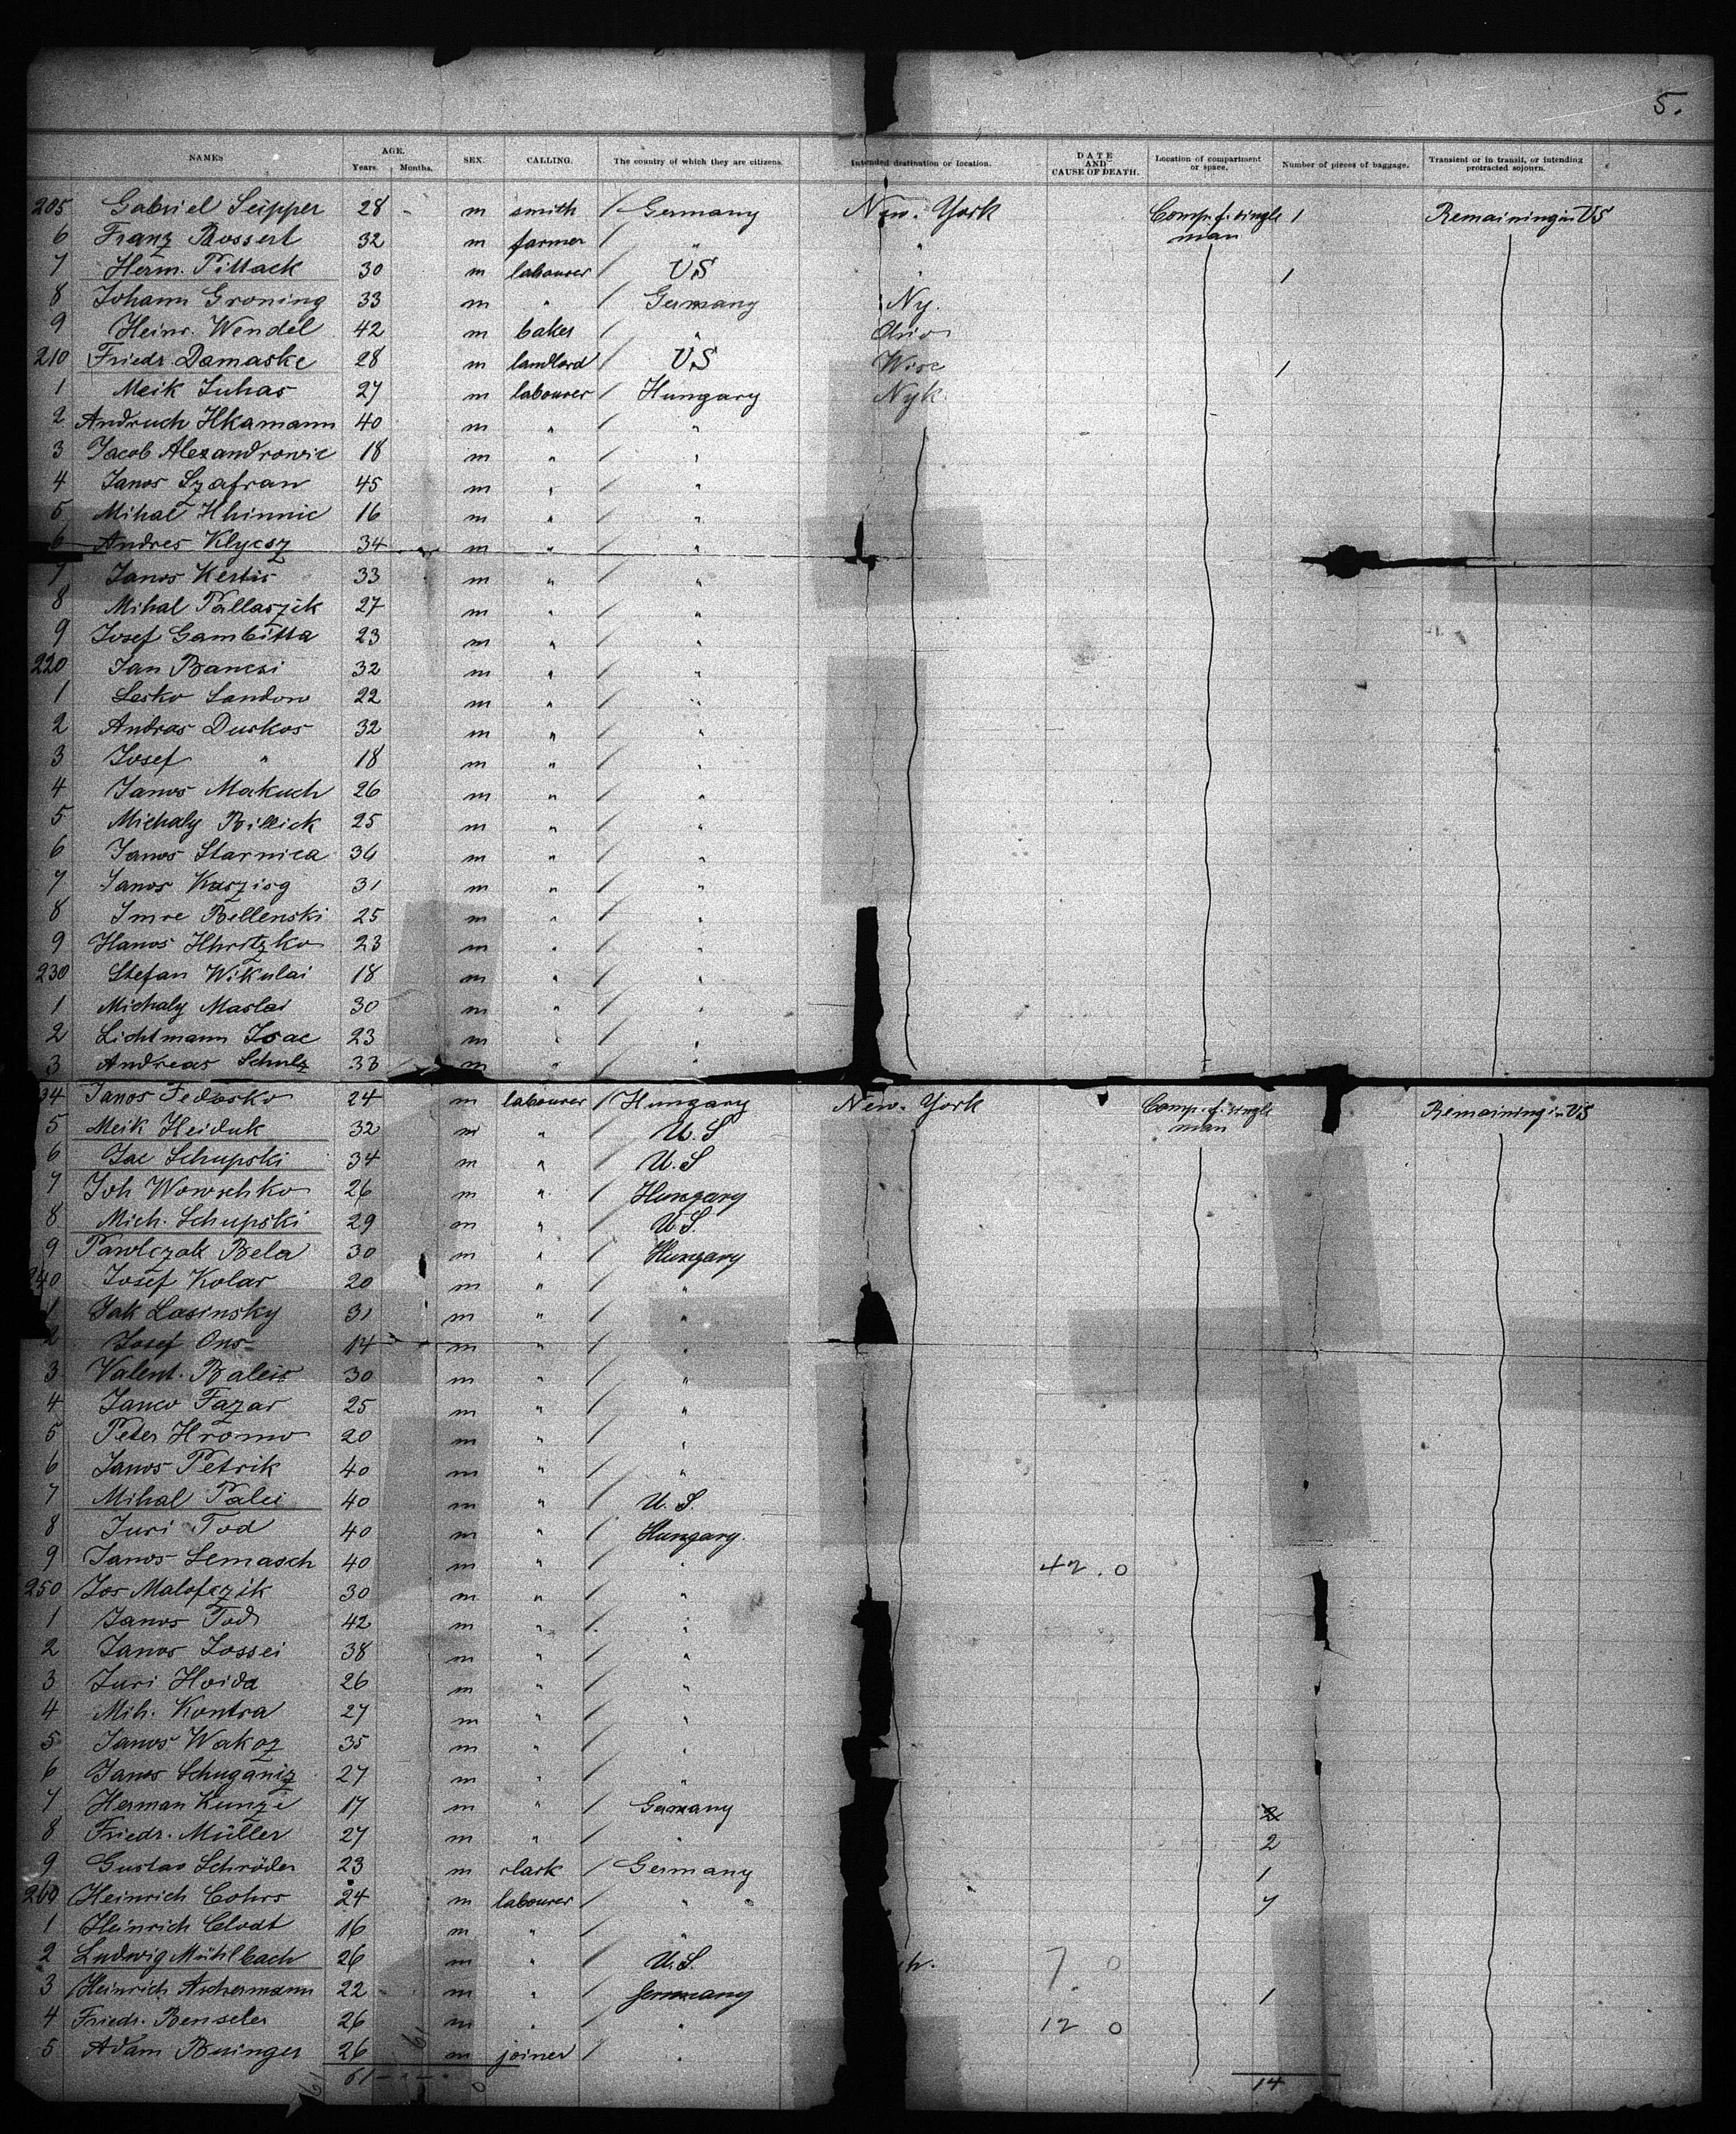 5.
NAMES AGE. Years. Months. SEX. CALLING. The country of which they are citizens. Intended destination or location. DATE AND CAUSE OF DEATH. Location of compartment or space. Number of pieces of baggage. Transient or in transit, or intending protracted sojourn.
205 Gabriel Seipper 28 - m smith / Germany New. York Comp. f. single man 1 Remaining in US
6 Franz Bossert 32 m farmer / " "
7 Herm. Pittack 30 m labourer / US " 1
8 Johann Groning 33 m " / Germany Ny.
9 Heinr. Wendel 42 m baker / "
210 Friedr. Damaske 28 m landlord / US Wisc 1
1 Meik Juhas 27 m labourer / Hungary Nyk.
2 Andruch Hkamann 40 m " / "
3 Jacob Alexandrowic 18 m " / "
4 Janos Szafran 45 m " / "
5 Mihal Hhinnic 16 m " / "
6 Andres Klycsz 34 m " / "
7 Janos Kertis 33 m " / "
8 Mihal Pallaszik 27 m " / "
9 Josef Gambitta 23 m " / "
220 Jan Bancsi 32 m " / "
1 Lesko Sandow 22 m " / "
2 Andras Durkos 32 m " / "
3 Josef " 18 m " / "
4 Janos Makuch 26 m " / "
5 Michaly Billick 25 m " / "
6 Janos Starnica 36 m " / "
7 Janos Kaszisg 31 m " / "
8 Imre Bellenski 25 m " / "
9 Hanos Hhritzko 23 m " / "
230 Stefan Wikulai 18 m " / "
1 Michaly Maslai 30 m " / "
2 Lichtmann Isac 23 m " / "
3 Andreas Schulz 33 m " / "
34 Janos Fedosko 24 m labourer / Hungary New. York Comp. f. single man Remaining in US
5 Meik Heiduk 32 m " / U.S
6 Jac Schupski 34 m " / U.S
7 Joh Woroschko 26 m " / Hungary
8 Mich. Schupski 29 m " / U.S.
9 Pawlczak Bela 30 m " / Hungary
240 Josef Kolar 20 m " / "
1 Jak Lasinsky 31 m " / "
2 Josef Ons 14 m " / "
3 Valent. Baleis 30 m " / "
4 Janco Fazar 25 m " / "
5 Peter Hromo 20 m " / "
6 Janos Petrik 40 m " / "
7 Mihal Palei 40 m " / U.S.
8 Juri Tod 40 m " / Hungary.
9 Janos Lemasch 40 m " / " 42.0
250 Jos Malofczik 30 m " / "
1 Janos Tod 42 m " / "
2 Janos Jossei 38 m " / "
3 Juri Hoida 26 m " / "
4 Mih. Kontra 27 m " / "
5 Janos Wakoz 35 m " / "
6 Janos Schuganiz 27 m " / "
7 Herman Kunze 17 m " / Germany 2
8 Friedr. Müller 27 m " / " 2
9 Gustav Schröder 23 m clark / Germany 1
260 Heinrich Cohrs 24 m labourer / " 7
1 Heinrich Clodt 16 m " / "
2 Ludwig Mühlbach 26 m " / U.S. 7. 0
3 Heinrich Achermann 22 m " / Germany 1
4 Friedr. Benseler 26 m " / " 12 0
5 Adam Buinger 26 m joiner / "
61 61 14